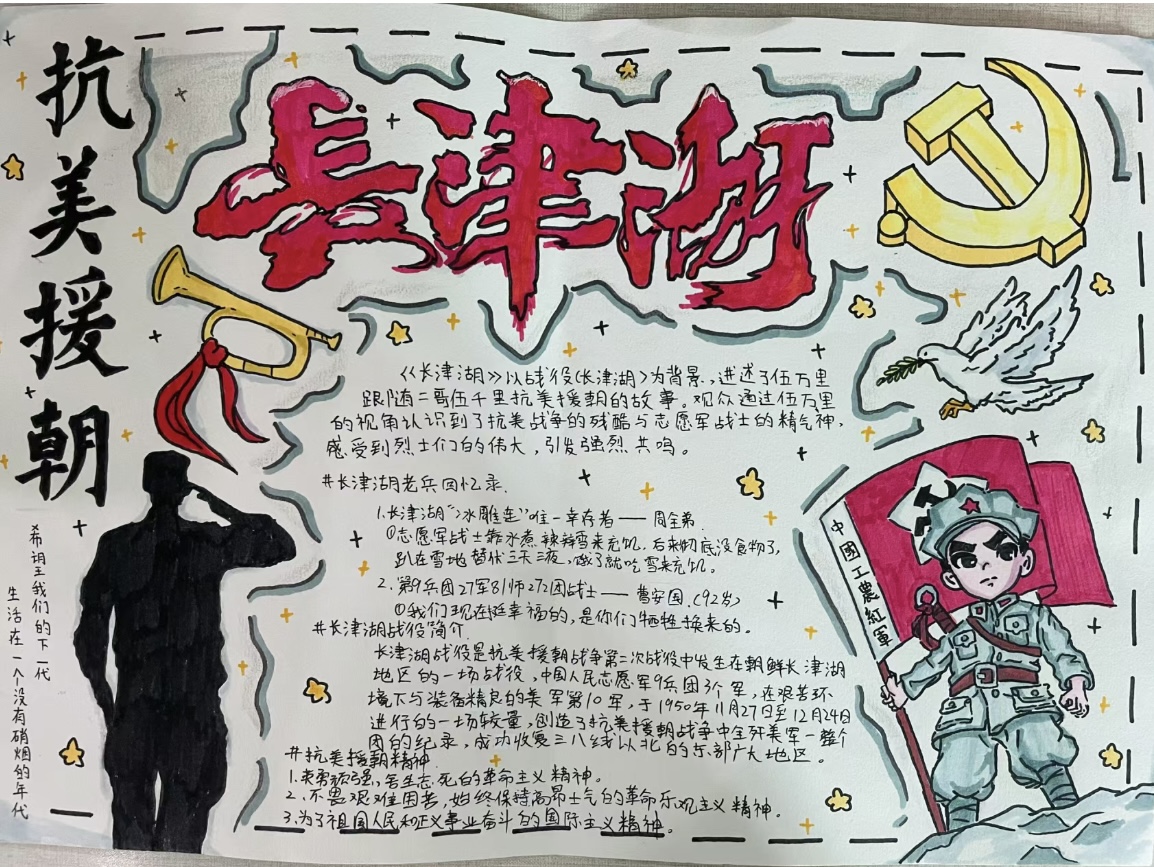 抗美援朝
長津湖
《长津湖》以战役(长津湖)为背景,进述了伍万里
跟随二哥伍千里抗美援朝的故事。观众通过伍万里
的视角认识到了抗美战争的残酷与志愿军战士的精气神,
感受到烈士们的伟大,引发强烈共鸣。
#长津湖老兵回忆录.
1.长津湖"冰雕连"唯一幸存者——周全弟.
①志愿军战士靠水煮辣辣雪来充饥.后来彻底没食物了,
趴在雪地替伏三天三夜,饿了就吃雪来充饥。
2.第9兵团27军81师272团战士——曹安国.(92岁)
①我们现在挺幸福的,是你们牺牲换来的。
#长津湖战役简介.
长津湖战役是抗美援朝战争第二次战役中发生在朝鲜长津湖
地区的一场战役,中国人民志愿军9兵团3个军,在艰苦环
境下与装备精良的美军第10军,于1950年11月27日至12月24日
进行的一场较量,创造了抗美援朝战争中全歼美军一整个
团的纪录,成功收复三八线以北的东部广大地区。
#抗美援朝精神
1.英勇顽强,舍生忘死的革命主义精神。
2.不畏艰难困苦,始终保持高昂士气的革命乐观主义精神。
3.为了祖国人民和正义事业奋斗的国际主义精神。
希望我们的下一代
生活在一个没有硝烟的年代
中國工農紅軍